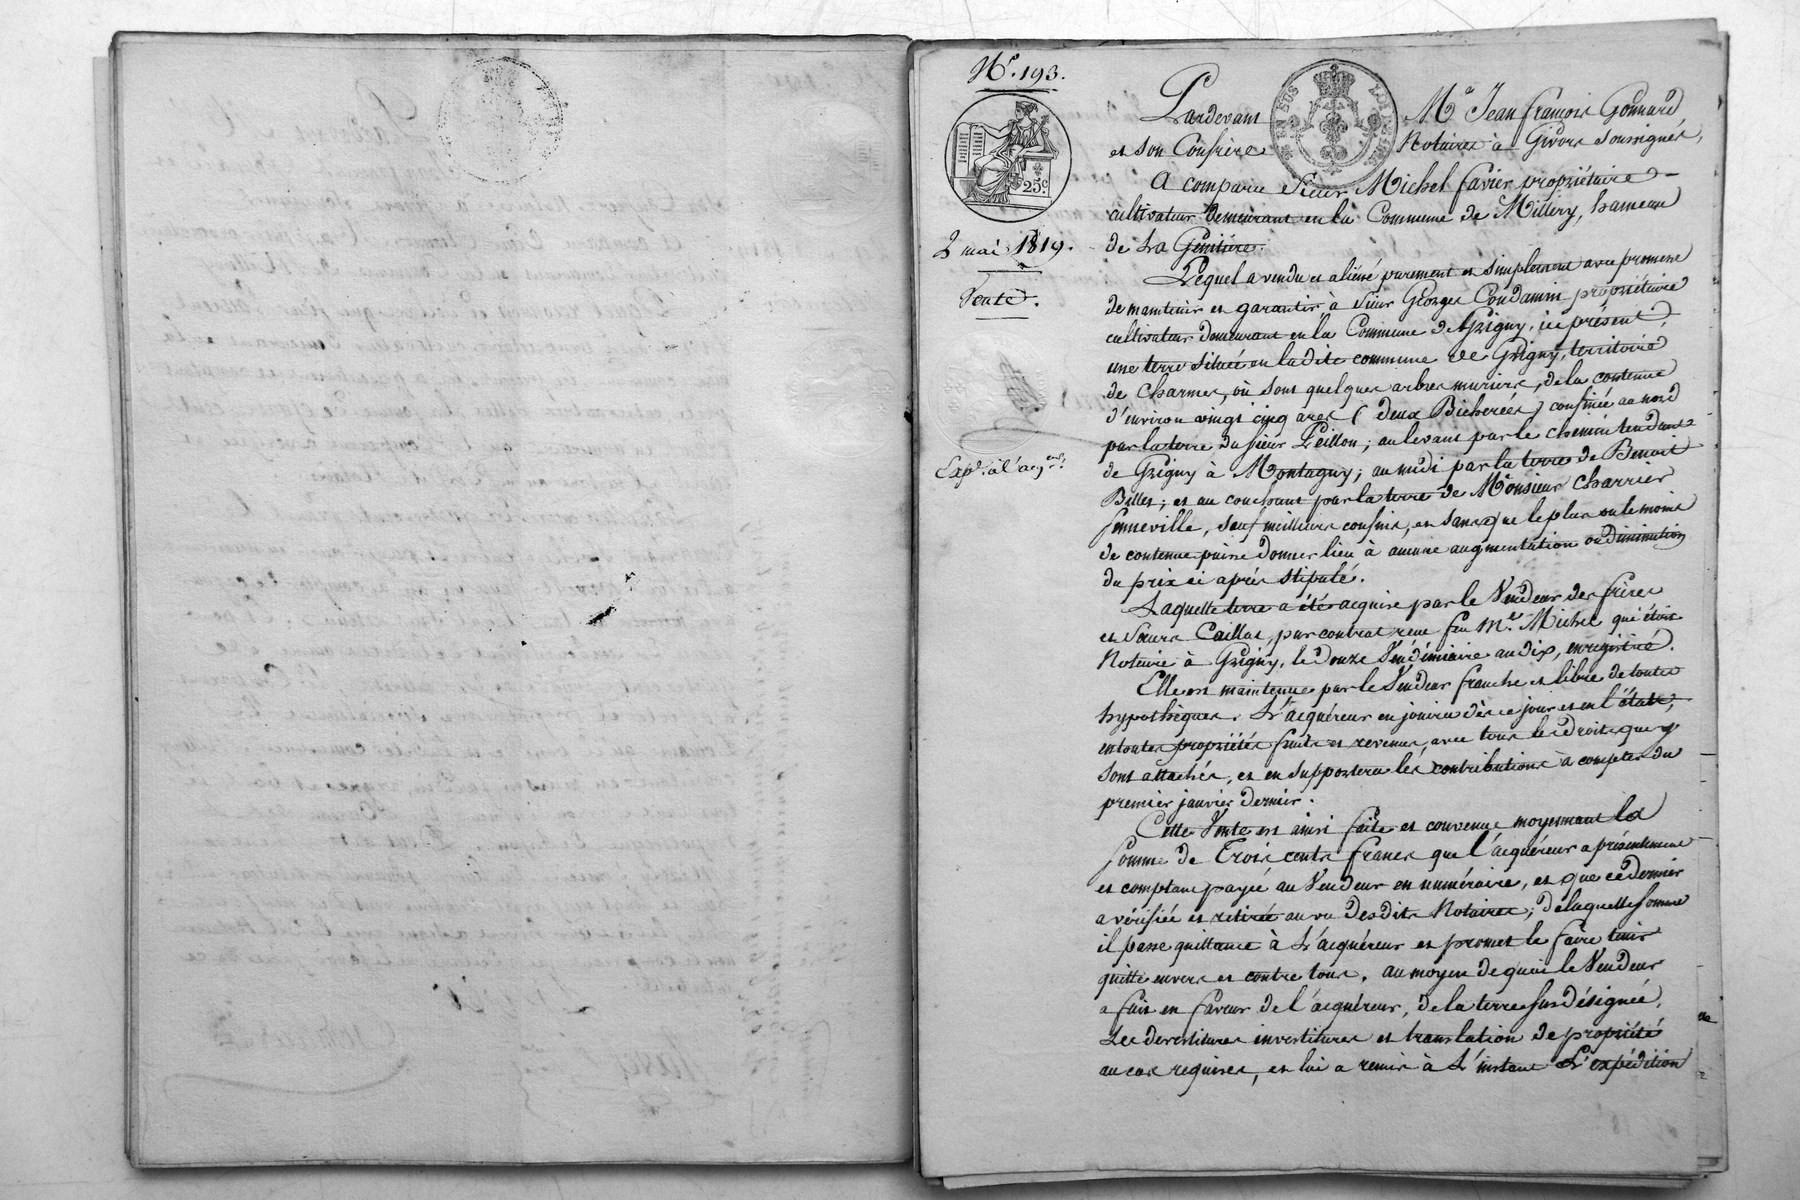 N.° 193.
25c
2 mai 1819.
Vente.
Exp.on à l'acq.eur
Pardevant Me Jean françois Gonnard
et son Confrère Notaires à Givors soussignés,
A comparu Sieur Michel favier propriétaire
cultivateur demeurant en la Commune de Millery, hameau
de La
Lequel a vendu et aliéné purement et simplement avec promesse
de maintenir et garantir à Sieur Georges Condamin propriétaire
cultivateur demeurant en la Commune de Grigny, ici présent
une terre située en ladite commune de Grigny, territoire
de Charmes, où sont quelques arbres muriers, de la contenue
d'environ vingt cinq ares (deux Bicherées) confinée au nord
par la terre du Sieur Peillon; au levant par le chemin tendant
de Grigny à Montagny; au midi par la terre de Benoit
Billet; et au couchant par la terre de Monsieur Charrier
Senneville, sauf meilleurs confins, et sans que le plus ou le moins
de contenue puisse donner lieu à aucune augmentation ou diminution
du prix ci après stipulé.
Laquelle terre a été acquise par le Vendeur des frères
et Sœurs Caillat, par contrat reçu feu Me Michel qui étoit
Notaire à Grigny, le douze Vendémiaire an dix, enregistré.
Elle est maintenue par le Vendeur franche et libre de toutes
hypothèques. L'acquéreur en jouira dès ce jour et en l'état,
en toutes propriétés fruits et revenus, avec tous les droits que y
sont attachés, et en supportera les contributions à compter du
premier janvier dernier.
Cette Vente est ainsi faite et convenue moyennant la
somme de Trois cents francs que l'acquéreur a présentement
et comptant payée au Vendeur en numéraire, et que ce dernier
a vérifiée et retirée au vu desdits Notaires; de laquelle somme
il passe quittance à L'acquéreur et promet le faire tenir
quitte envers et contre tous. au moyen de quoi le Vendeur
a fait en faveur de l'acquéreur, de la terre sus désignée,
Les devestitures investitures et translation de propriété
au cas requises, et lui a remis à L'instant L'expédition